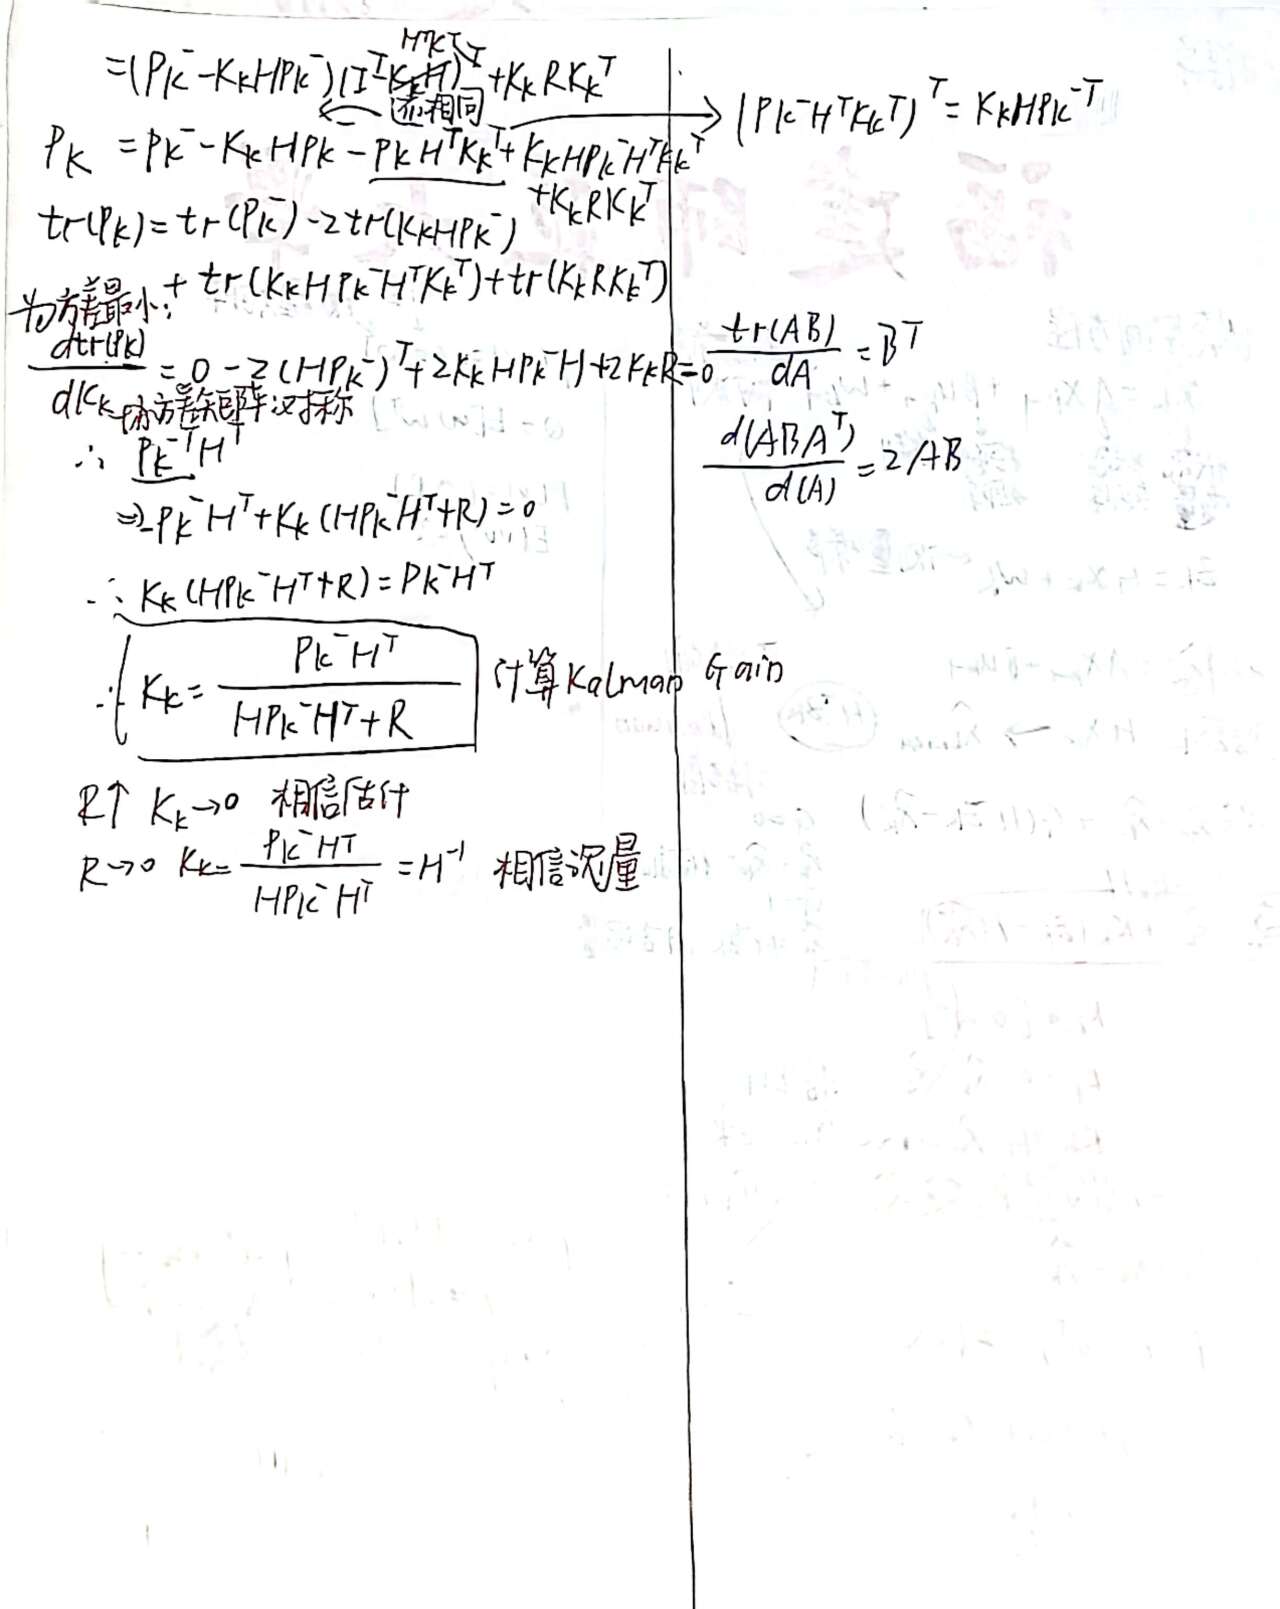 =(Pk⁻-KkHPk⁻)(Iᵀ-KkᵀHᵀ)+KkRKkᵀ
HᵀKᵀ
迹相同
→ (Pk⁻HᵀKkᵀ)ᵀ=KkHPk⁻ᵀ
Pk =Pk⁻-KkHPk⁻-Pk⁻HᵀKkᵀ+KkHPk⁻HᵀKkᵀ
+KkRKkᵀ
tr(Pk)=tr(Pk⁻)-2tr(KkHPk⁻)
+tr(KkHPk⁻HᵀKkᵀ)+tr(KkRKkᵀ)
为方差最小:
dtr(Pk)/dKk =0-2(HPk⁻)ᵀ+2KkHPk⁻H+2KkR=0
协方差矩阵对称
∴ Pk⁻ᵀHᵀ
⇒-Pk⁻Hᵀ+Kk(HPk⁻Hᵀ+R)=0
∴ Kk(HPk⁻Hᵀ+R)=Pk⁻Hᵀ
∴ Kk= Pk⁻Hᵀ/(HPk⁻Hᵀ+R) 计算Kalman Gain
R↑ Kk→0 相信估计
R→0 Kk= Pk⁻Hᵀ/(HPk⁻Hᵀ) =H⁻¹ 相信测量
tr(AB)/dA =Bᵀ
d(ABAᵀ)/d(A) =2AB